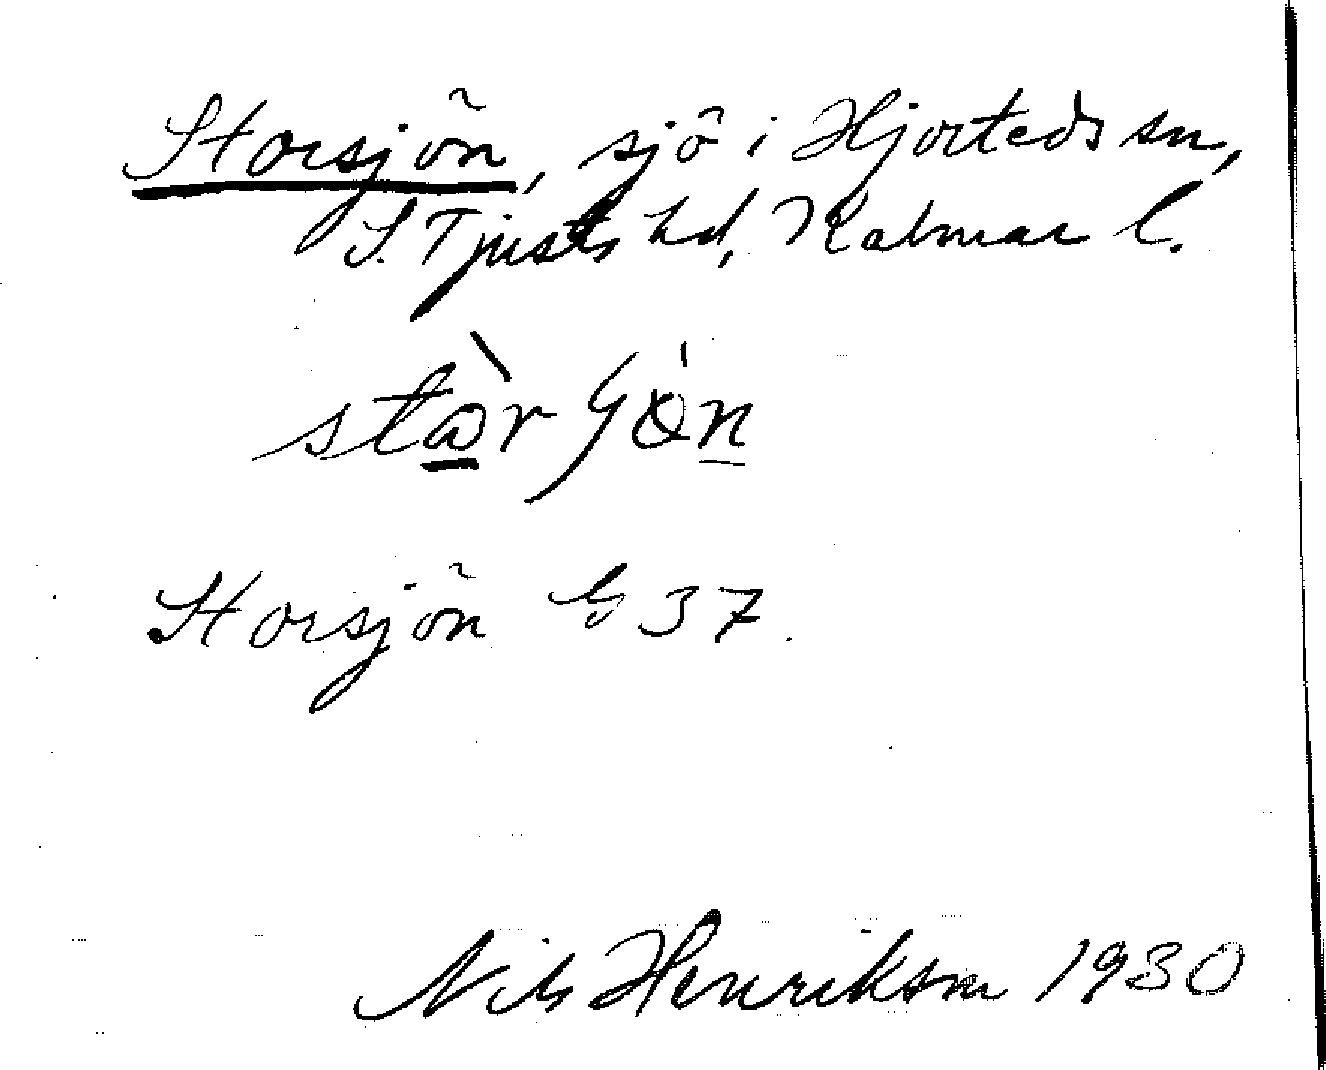 Storsjön, sjö i Hjorteds sn,
S. Tjusts hd, Kalmar l.
Storsjön G 37.
Nils Henriksson 1930